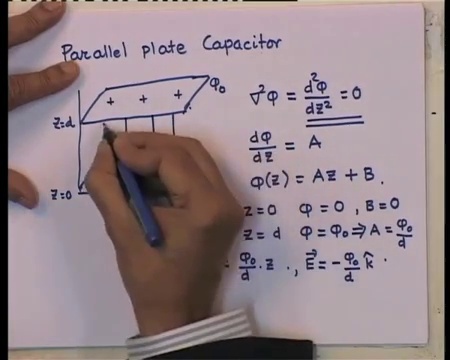 Parallel plate Capacitor
+ + + φ₀
z=d
z=0
∇²φ = d²φ/dz² = 0
dφ/dz = A
φ(z) = Az + B.
z=0 φ=0, B=0
z=d φ=φ₀ ⇒ A = φ₀/d
= φ₀/d · z ., E⃗ = - φ₀/d k̂ .